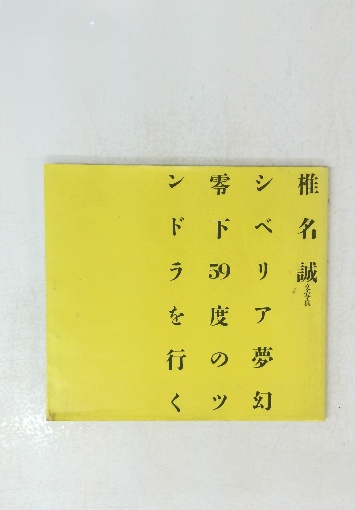 椎名誠 文と写真
シベリア夢幻
零下59度のツ
ンドラを行く